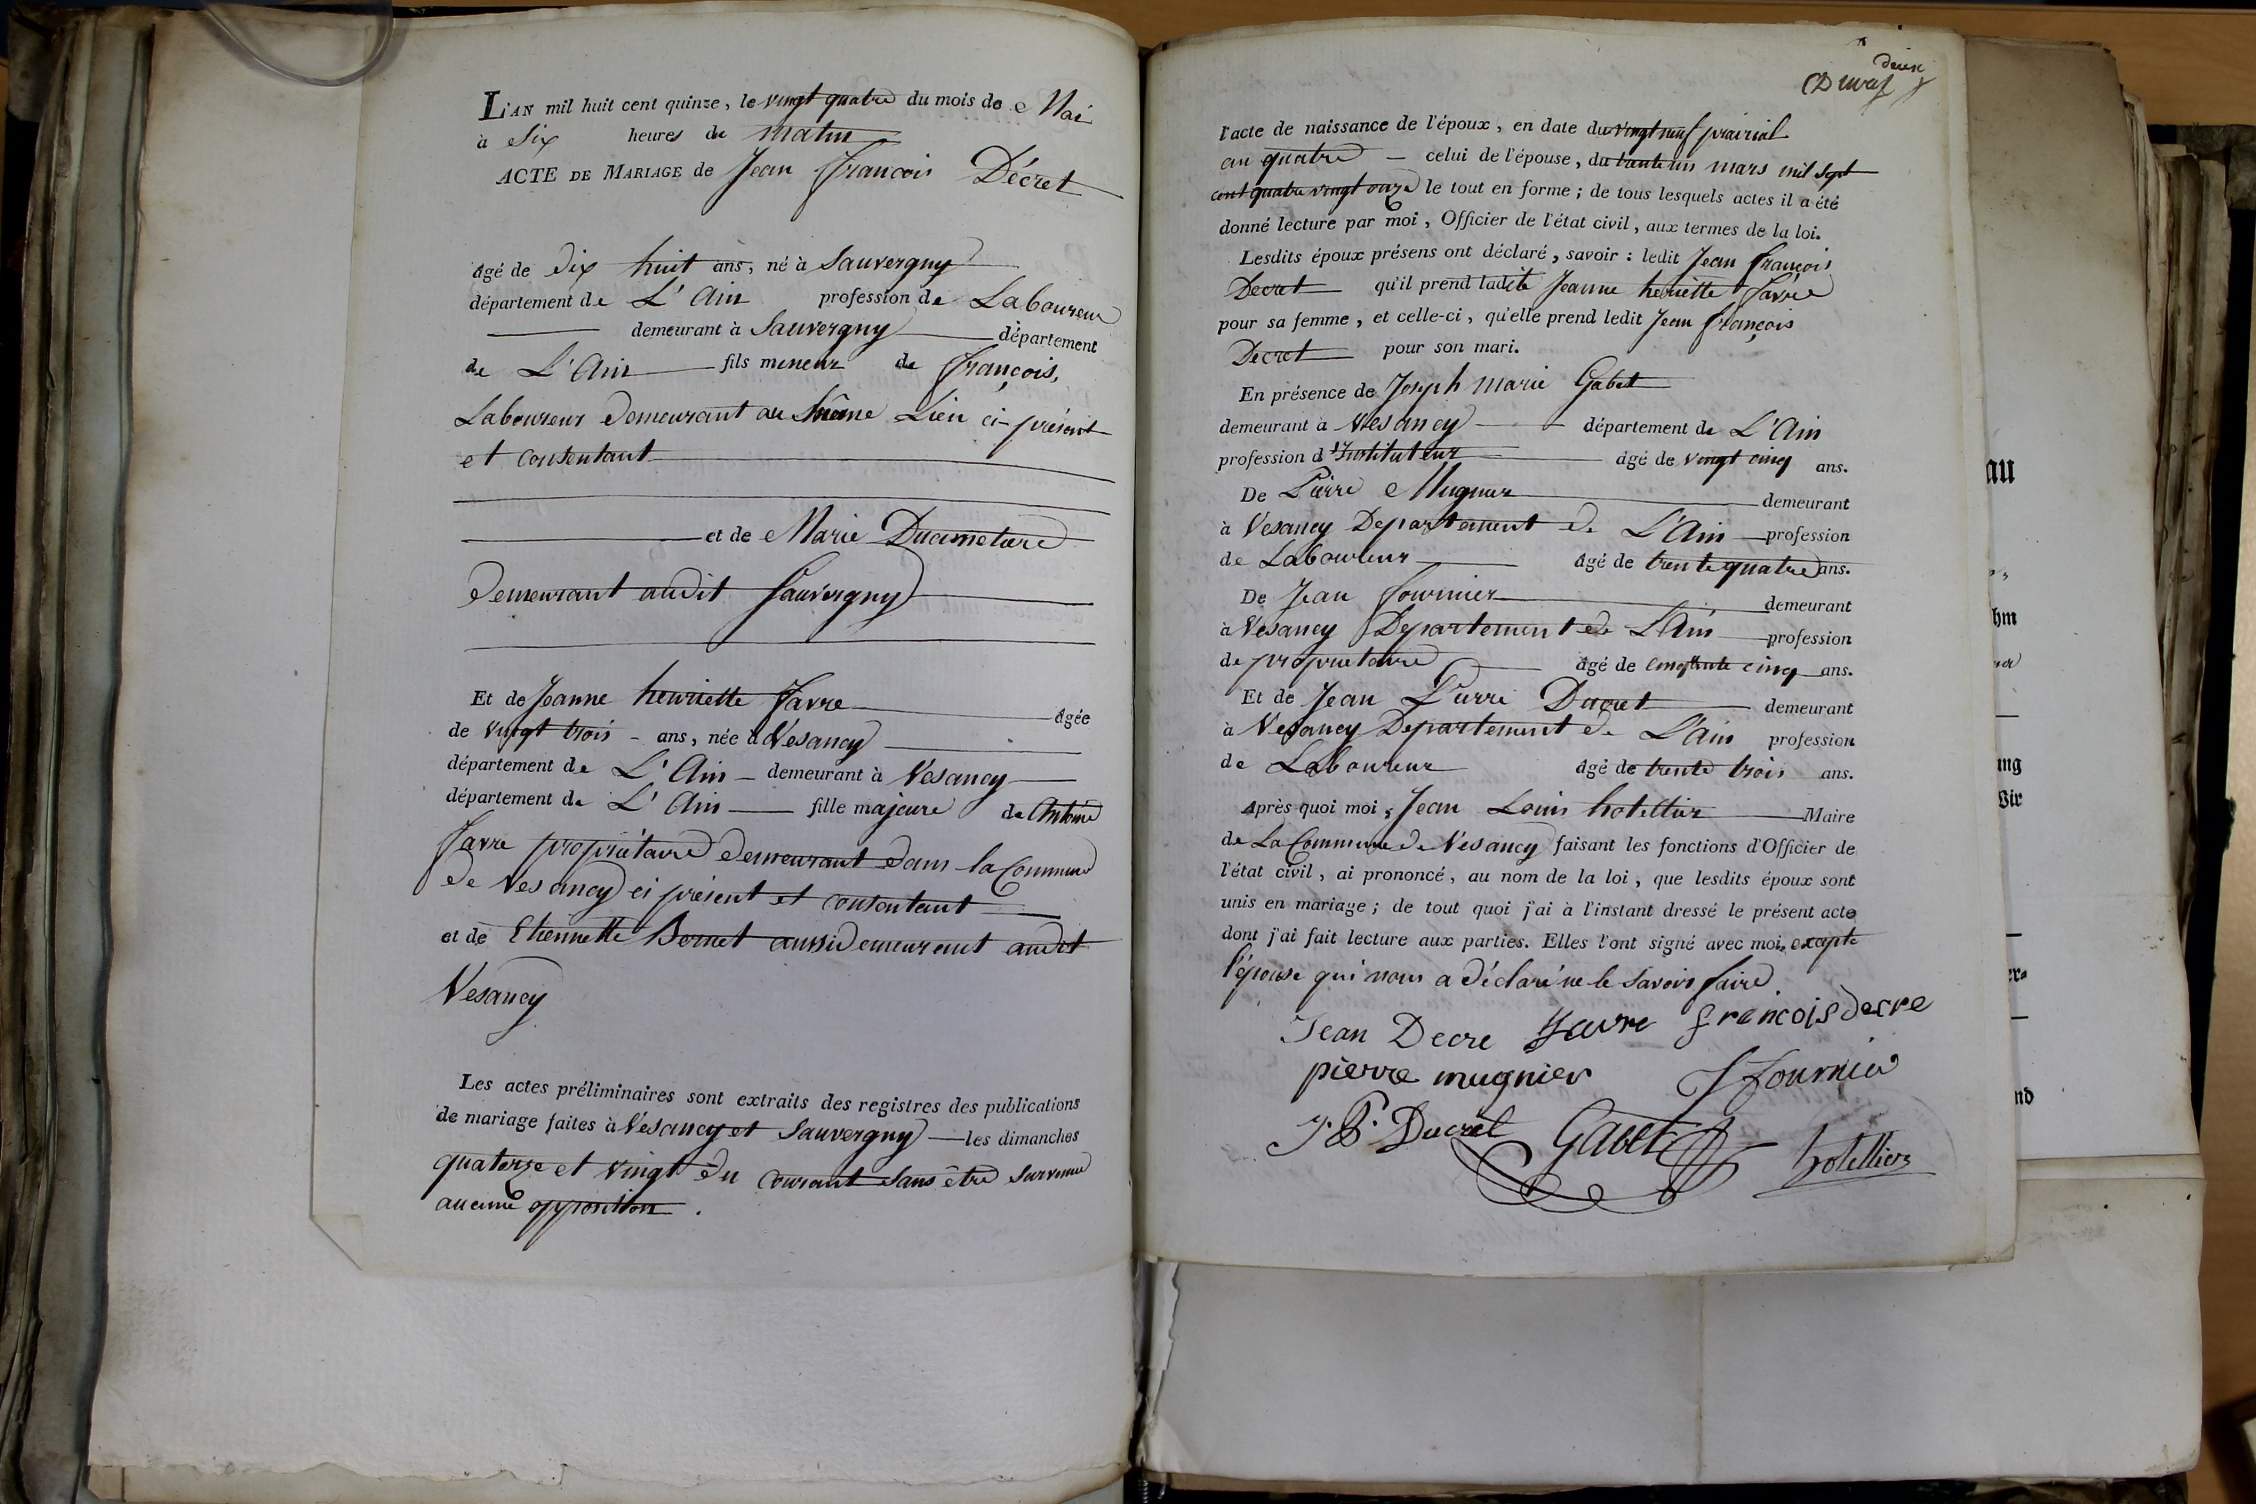 L'AN mil huit cent quinze, le vingt quatre du mois de Mai
à Six heures du matin
ACTE DE MARIAGE de Jean François Décret
âgé de dix huit ans, né à Sauvergny
département de L'Ain profession de Laboureur
demeurant à Sauvergny département
de L'Ain fils mineur de François,
Laboureur demeurant au même Lieu ci-présent
et consentant
et de Marie Ducimetiere
demeurant audit Sauvergny
Et de Jeanne henriette Favre âgée
de vingt trois - ans, née à Vésancy
département de L'Ain demeurant à Vésancy
département de L'Ain fille majeure de Antoine
Favre propriétaire demeurant dans la Commune
de Vesancy ci présent et consentant
et de Etiennette Bornet aussi demeurant audit
Vesancy
Les actes préliminaires sont extraits des registres des publications
de mariage faites à Vésancy et Sauvergny les dimanches
quatorze et vingt du courant sans être survenue
aucune opposition.
deux
l'acte de naissance de l'époux, en date du vingt neuf prairial
an quatre — celui de l'épouse, du trente un mars mil sept
cent quatre vingt onze le tout en forme; de tous lesquels actes il a été
donné lecture par moi, Officier de l'état civil, aux termes de la loi.
Lesdits époux présens ont déclaré, savoir : ledit Jean françois
Decret qu'il prend ladite Jeanne henriette Favre
pour sa femme, et celle-ci, qu'elle prend ledit Jean françois
Decret pour son mari.
En présence de Joseph Marie Gabet
demeurant à Vesancy département de L'Ain
profession d'Instituteur âgé de vingt cinq ans.
De Pierre Mugnier demeurant
à Vesancy Departement de L'Ain profession
de Laboureur âgé de trente quatre ans.
De Jean Fournier demeurant
à Vesancy Departement de L'Ain profession
de propriétaire âgé de cinquante cinq ans.
Et de Jean Pierre Ducret demeurant
à Vesancy Departement de L'Ain profession
de Laboureur âgé de trente trois ans.
Après quoi moi, Jean Louis hotellier Maire
de La Commune de Vésancy faisant les fonctions d'Officier de
l'état civil, ai prononcé, au nom de la loi, que lesdits époux sont
unis en mariage; de tout quoi j'ai à l'instant dressé le présent acte
dont j'ai fait lecture aux parties. Elles l'ont signé avec moi, excepté
l'épouse qui nous a déclaré ne le savoir faire
Jean Decre Favre francois decre
pierre mugnier J fournier
J. P. Ducret Gabet hotellier